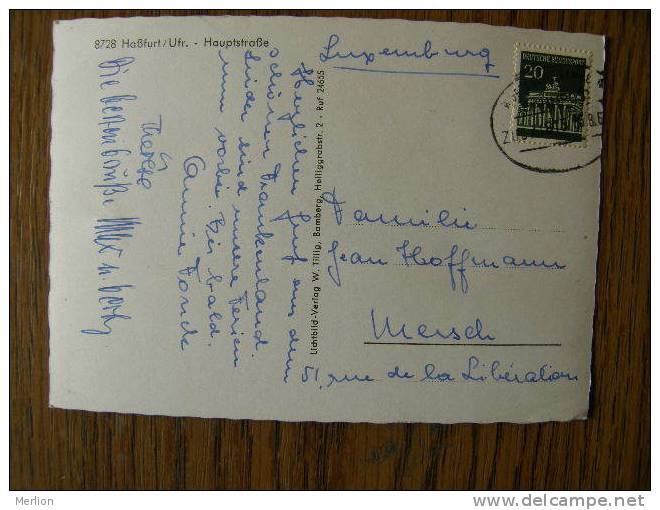 8728 Haßfurt/Ufr. - Hauptstraße
Herzlichen Gruß aus dem
schönen Frankenland.
Leider sind unsere Ferien
nun vorbei. Bis bald.
Thérèse
Die besten Grüße
Lichtbild-Verlag W. Tillig, Bamberg, Heiliggrabstr. 2 - Ruf 24655
Luxemburg
DEUTSCHE BUNDESPOST
20
Familie
Jean Hoffmann
Mersch
51, rue de la Libération
Merlion
http://www.delcampe.net